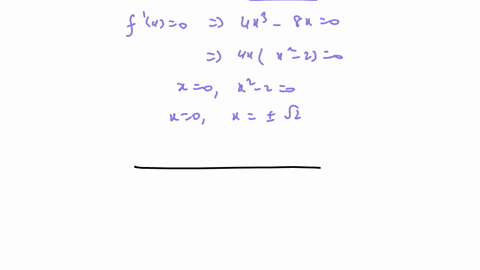 f'(x)=0 => 4x³ - 8x = 0
=> 4x( x²-2) = 0
x=0, x²-2=0
x=0, x = ± √2